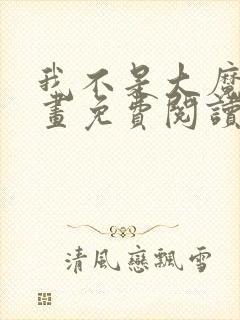 我不是大魔
畫免費閱讀
清風戀飄雪